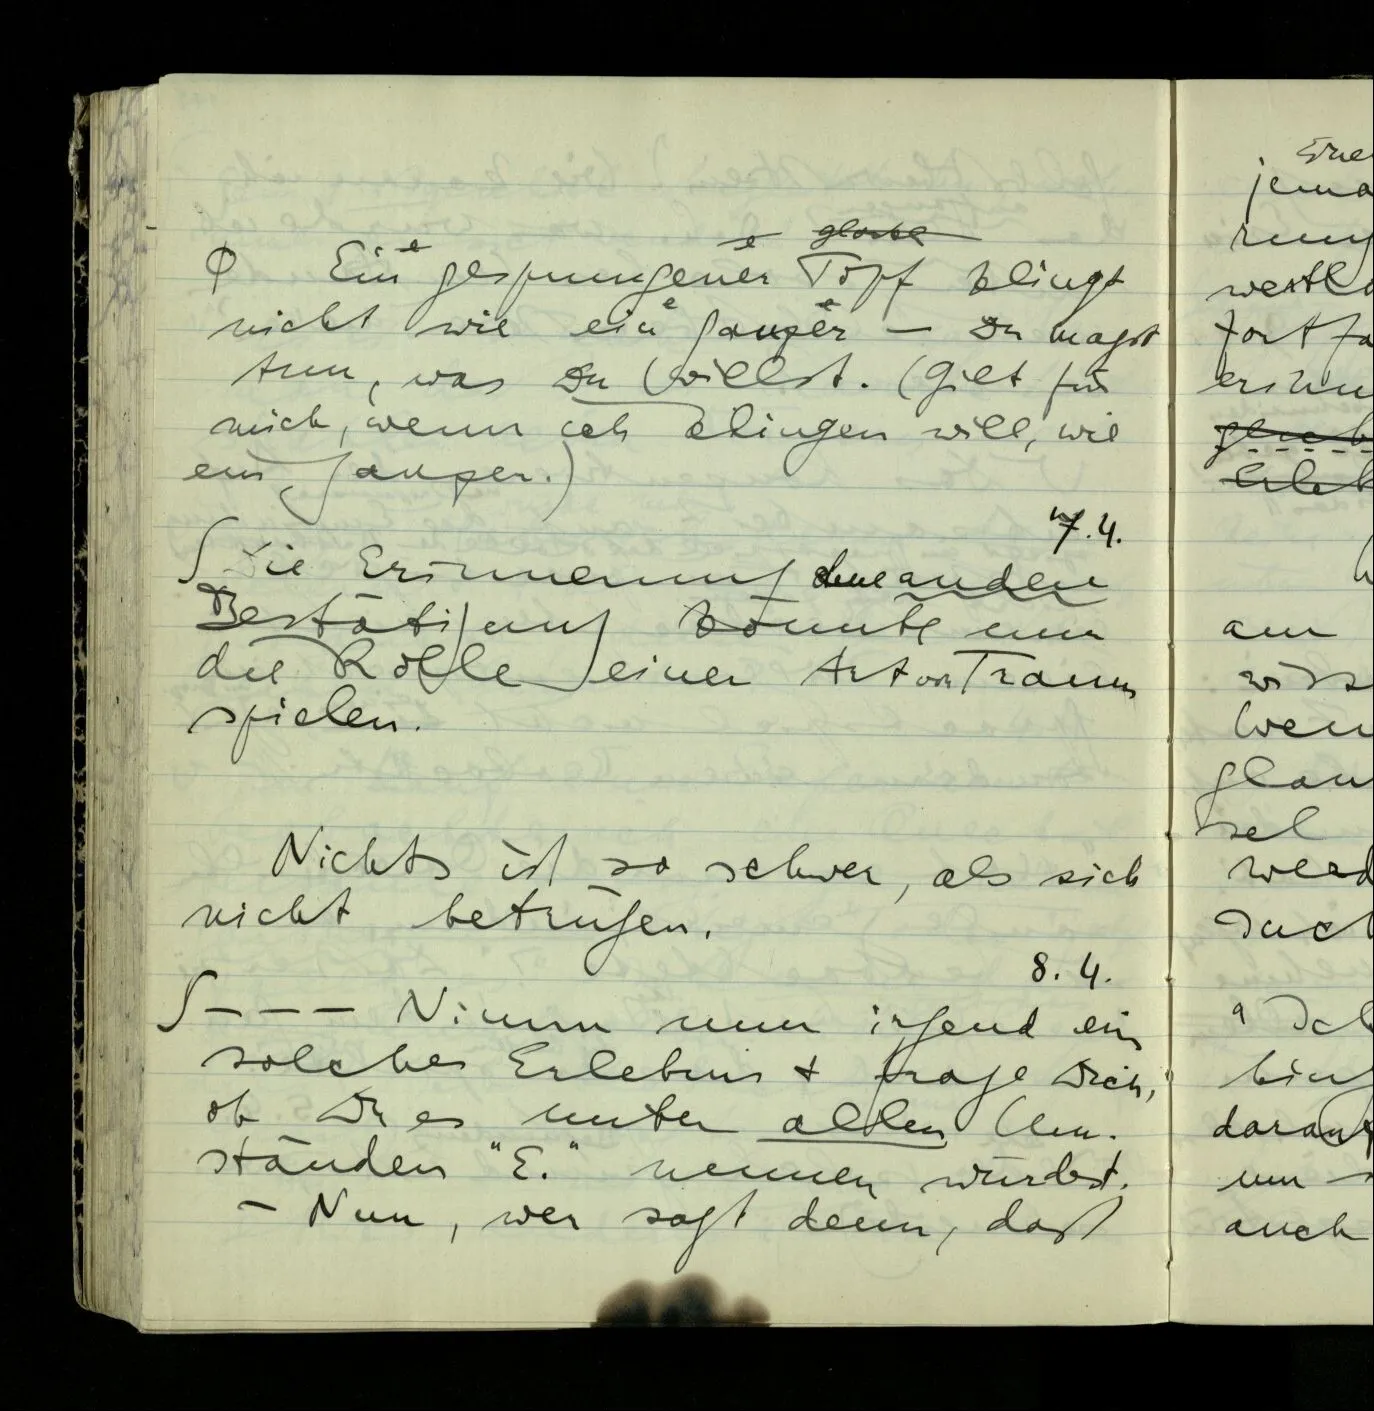 e e glocke
Ø Ein gesprungener Topf klingt
nicht wie ein ganzer — Du magst
tun, was Du willst. (Gilt für
mich, wenn ich klingen will, wie
ein ganzer.)
7.4.
∫ Die Erinnerung ohne andere
Bestätigung könnte nun
die Rolle einer Art von Traum
spielen.
Nichts ist so schwer, als sich
nicht betrügen.
8. 4.
∫ – – – Nimm nun irgend ein
solches Erlebnis + frage Dich,
ob Du es unter allen Um-
ständen "E." nennen würdest.
– Nun, wer sagt denn, daß
jema
am
wen
glau
werd
darauf
um
auch